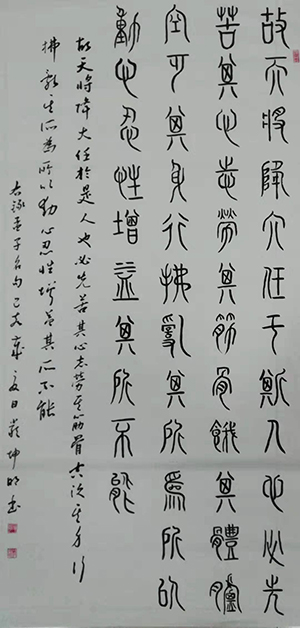 故天將降大任于斯人也必先
苦其心志勞其筋骨餓其體膚
空乏其身行拂亂其所爲所以
動心忍性增益其所不能
故天將降大任於是人也必先苦其心志勞其筋骨空乏其身行
拂亂其所為所以動心忍性增益其所不能
右錄孟子名句己亥夏日坤明書